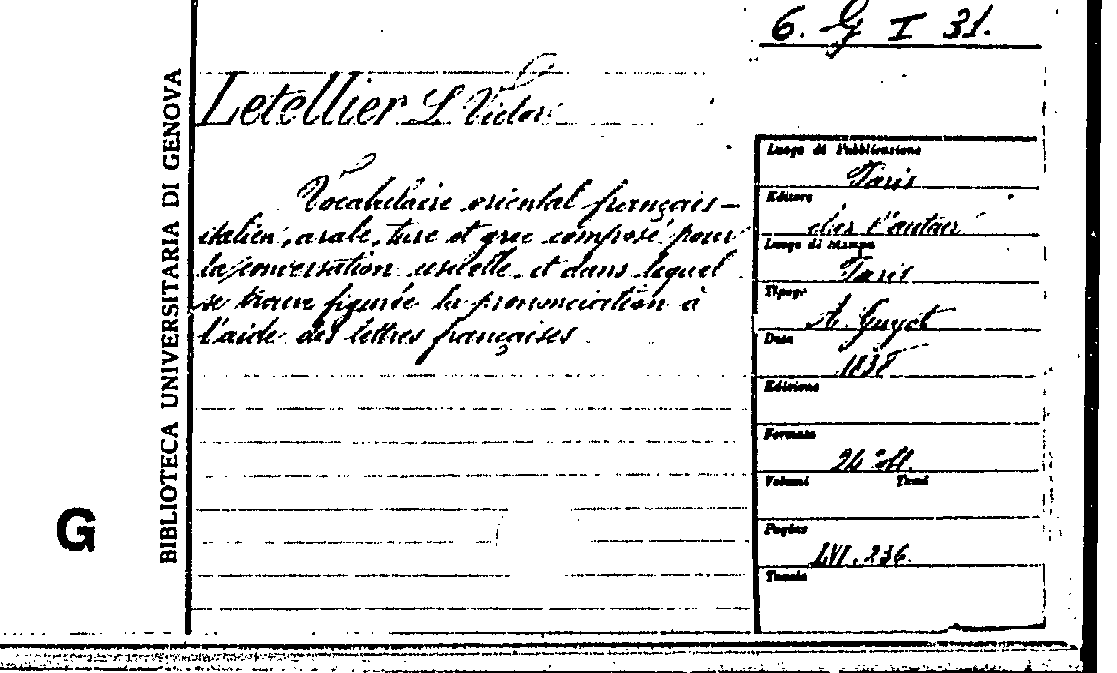 6. G I 31.
Letellier L. Victor
Vocabulaire oriental français-
italien, arabe, turc et grec composé pour
la conversation usuelle, et dans lequel
se trouve figurée la prononciation à
l'aide des lettres françaises
BIBLIOTECA UNIVERSITARIA DI GENOVA
G
Luogo di Pubblicazione
Paris
Editore
chez l'auteur
Luogo di stampa
Paris
Tipogr.
A. Guyot
Data
1838
Edizione
Formato
24°
Volumi Tomi
Pagine
LVI, 236.
Tavole